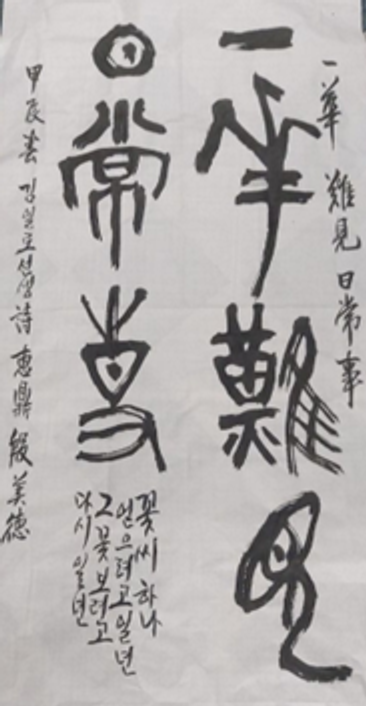 一華 難見 日常事
一華難見
日常事
꽃씨 하나
얻으려고 일년
그 꽃 보려고
다시 일년
甲辰春 김일로선생詩 惠鼎 殷美德